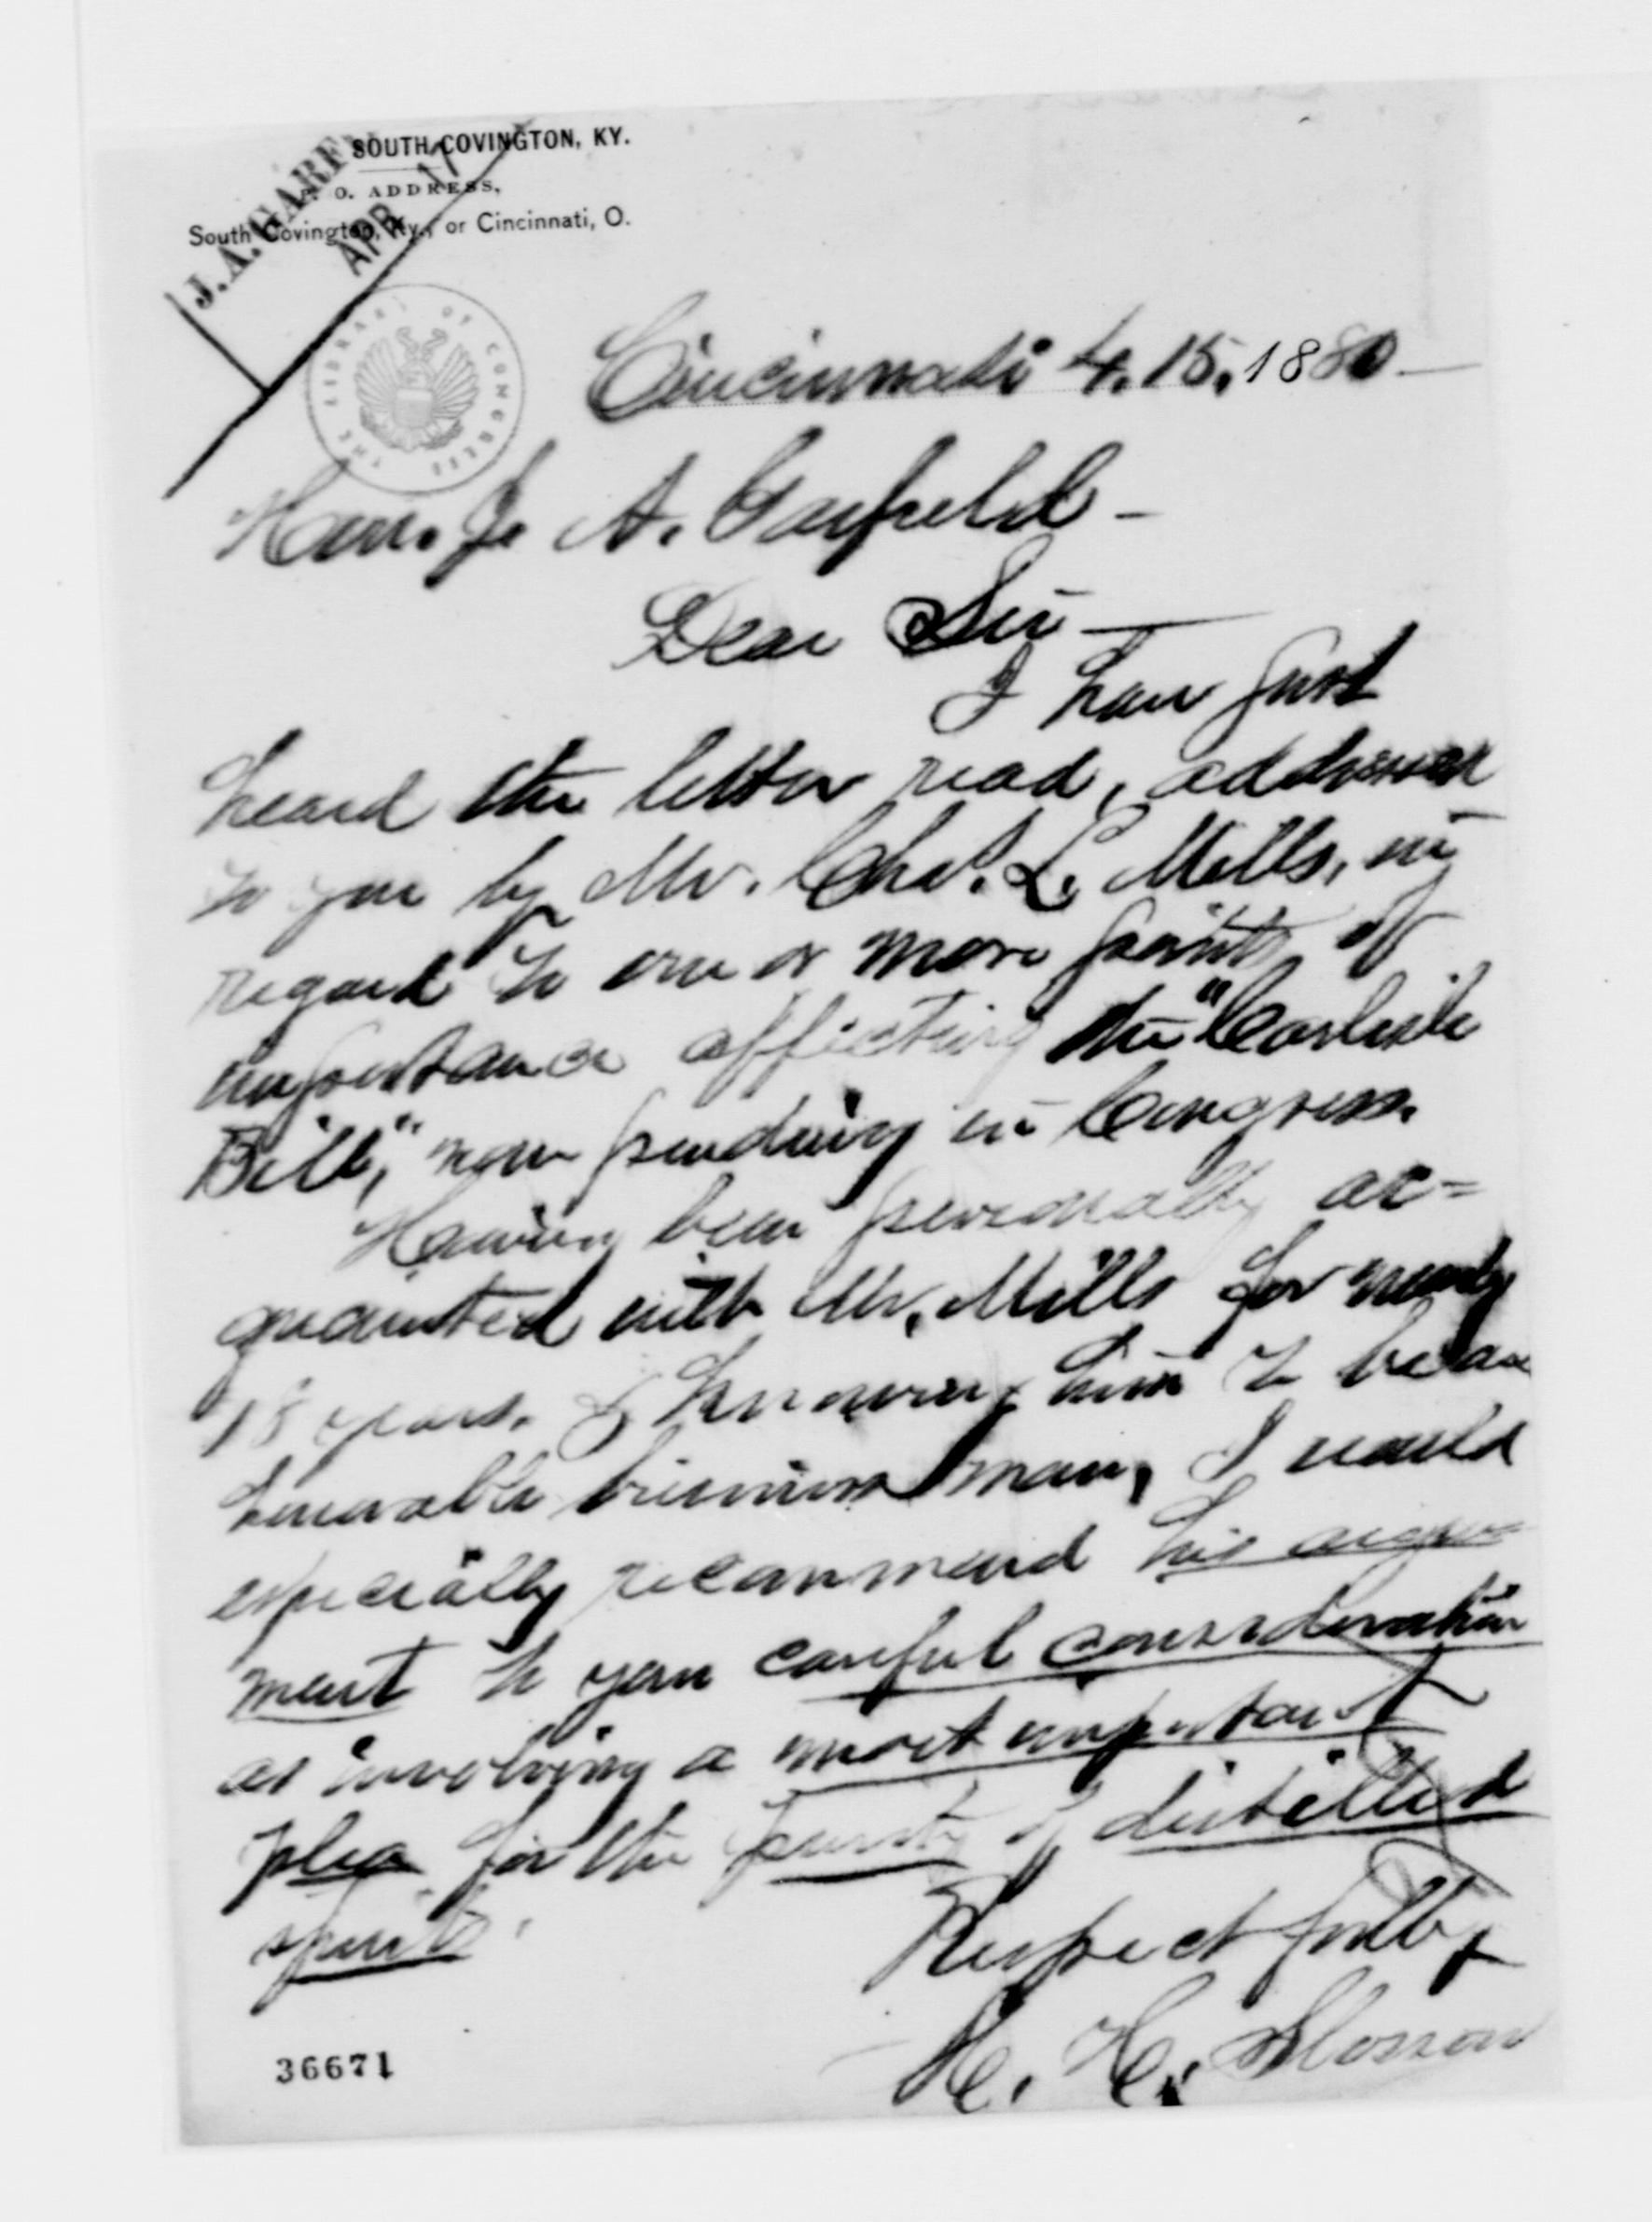 SOUTH COVINGTON, KY.
P. O. ADDRESS,
South Covington, Ky., or Cincinnati, O.
J. A. GARF
APR 17
THE LIBRARY OF CONGRESS
Cincinnati 4.15.1880—
Hon. J. A. Garfield—
Dear Sir—
I have just
heard the letter read, addressed
to you by Mr. Chas. L. Mills, in
regard to one or more points of
importance affecting the "Carlisle
Bill," now pending in Congress.
Having been personally ac=
quainted with Mr. Mills for nearly
18 years, & knowing him to be an
honorable business man, I would
especially recommend his argu=
ment to your careful consideration
as involving a most important
plea for the purity of distilled
spirits.
Respectfully
H. C.
36671